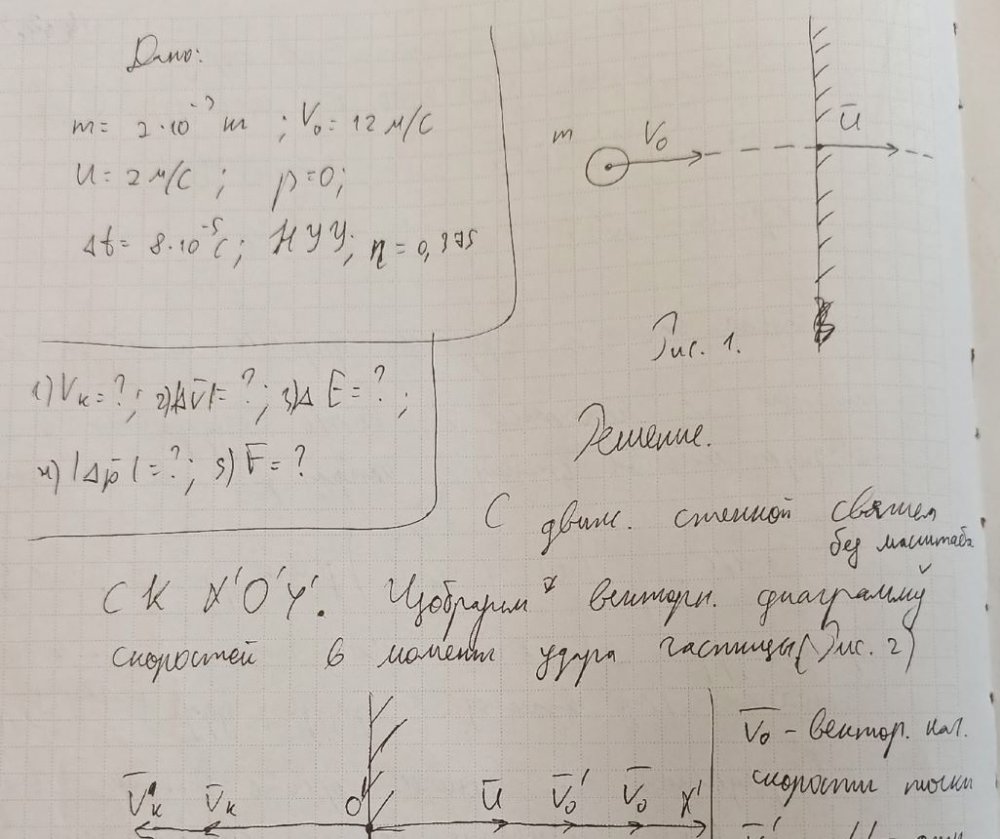 Дано:
m = 2·10⁻³ т ; V₀ = 12 м/с
U = 2 м/с ; β=0;
Δt = 8·10⁻⁵ с; НУУ; η = 0,375
1) Vₖ = ?; 2) |ΔV̄| = ?; 3) Δ E = ?;
4) |Δp̄| = ?; 5) F = ?
m V₀ Ū
Рис. 1.
Решение.
С движ. стенкой свяжем
без масштаба
СК X'O'Y'. Изобразим векторн. диаграмму
скоростей в момент удара частицы (Рис. 2)
V̄ₖ' V̄ₖ O' Ū V̄₀' V̄₀ X'
V̄₀ - вектор. нач.
скорости точки
V̄₀'